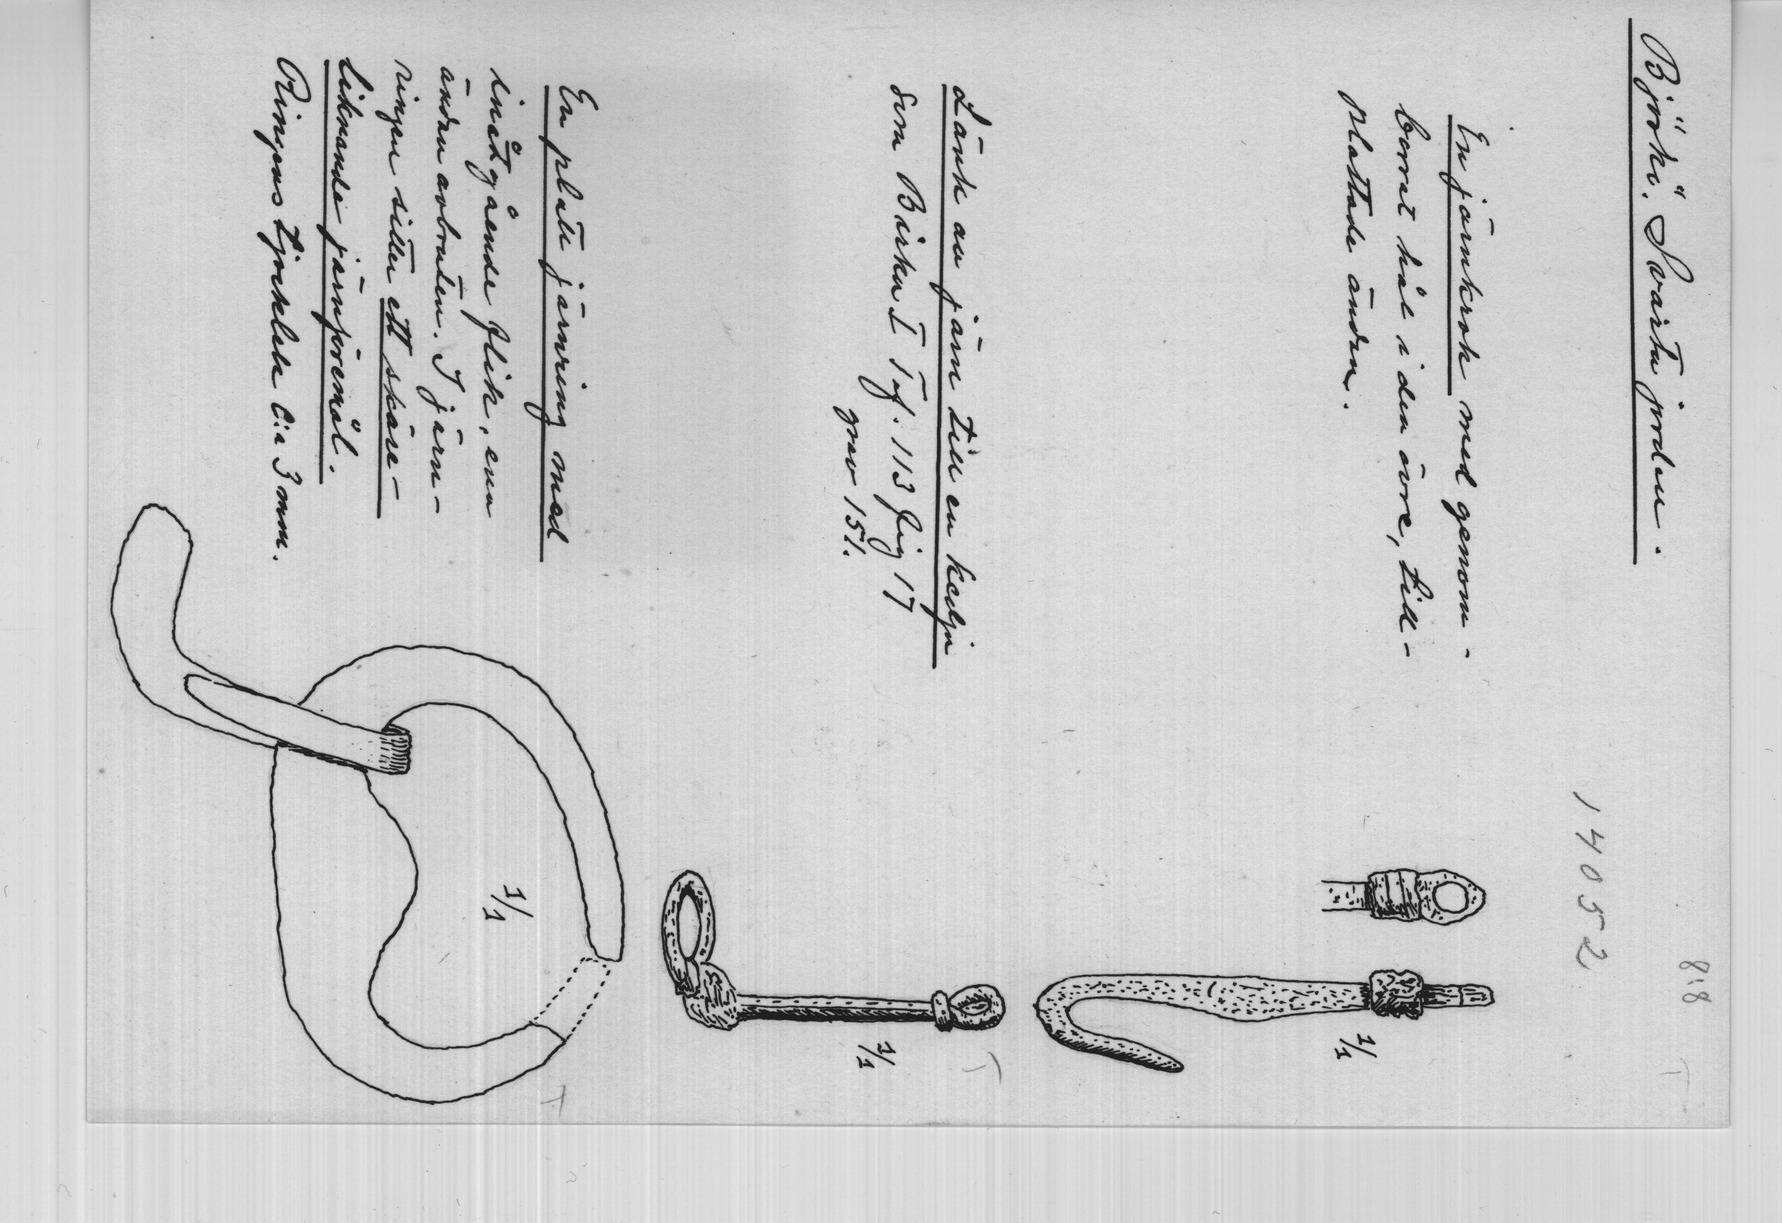 8.8
Björkö. Svarta jorden.
14052
En järnkrok med genom-
borrat hål i den övre, till-
plattade änden.
1/1
Länk av järn till en kedja
som Birka I Taf. 113 fig 17
grav 151.
1/1
En platt järnring med
inåtgående flik, ena
änden avbruten. I järn-
ringen sitter ett skäre-
liknande järnföremål.
Ringens tjocklek c:a 3 mm.
1/1
T
T
T